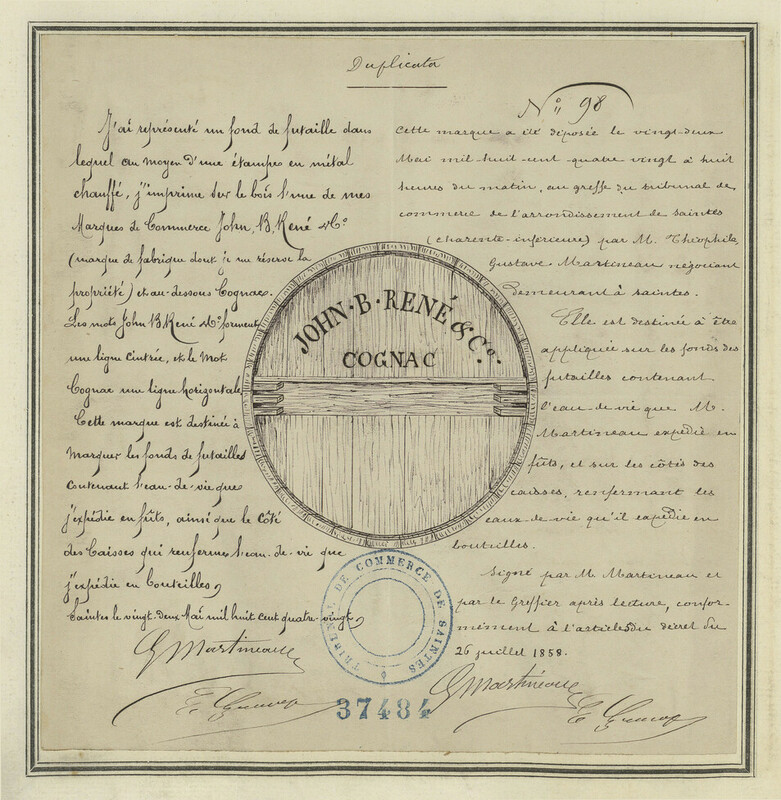 Duplicata
J'ai représenté un fond de futaille dans
lequel au moyen d'une étampes en métal
chauffé, j'imprime sur le bois l'une de mes
Marques de Commerce John, B. René & Co.
(marque de fabrique dont je me réserve la
propriété) et au-dessous Cognac.
Les mots John B. René & Co. forment
une ligne cintrée, et le mot
Cognac une ligne horizontale.
Cette marque est destinée à
marquer les fonds de futailles
contenant l'eau-de-vie que
j'expédie en fûts, ainsi que le côté
des caisses qui renferme l'eau-de-vie que
j'expédie en bouteilles,
Saintes le vingt-deux Mai mil huit cent quatre-vingt,
G Martineau
JOHN·B·RENÉ & Co.
COGNAC
No 98
Cette marque a été déposée le vingt-deux
Mai mil-huit-cent-quatre vingt à huit
heures du matin, au greffe du tribunal de
commerce de l'arrondissement de saintes
(charente-inférieure) par M. Théophile
Gustave Martineau négociant
demeurant à saintes.
Elle est destinée à être
appliquée sur les fonds des
futailles contenant
l'eau-de-vie que M.
Martineau expédie en
fûts, et sur les côtés des
caisses, renfermant les
eaux-de-vie qu'il expédie en
bouteilles.
Signé par M. Martineau et
par le Greffier après lecture, confor-
mément à l'article du décret du
26 juillet 1858.
G Martineau
TRIBUNAL DE COMMERCE DE SAINTES
37484